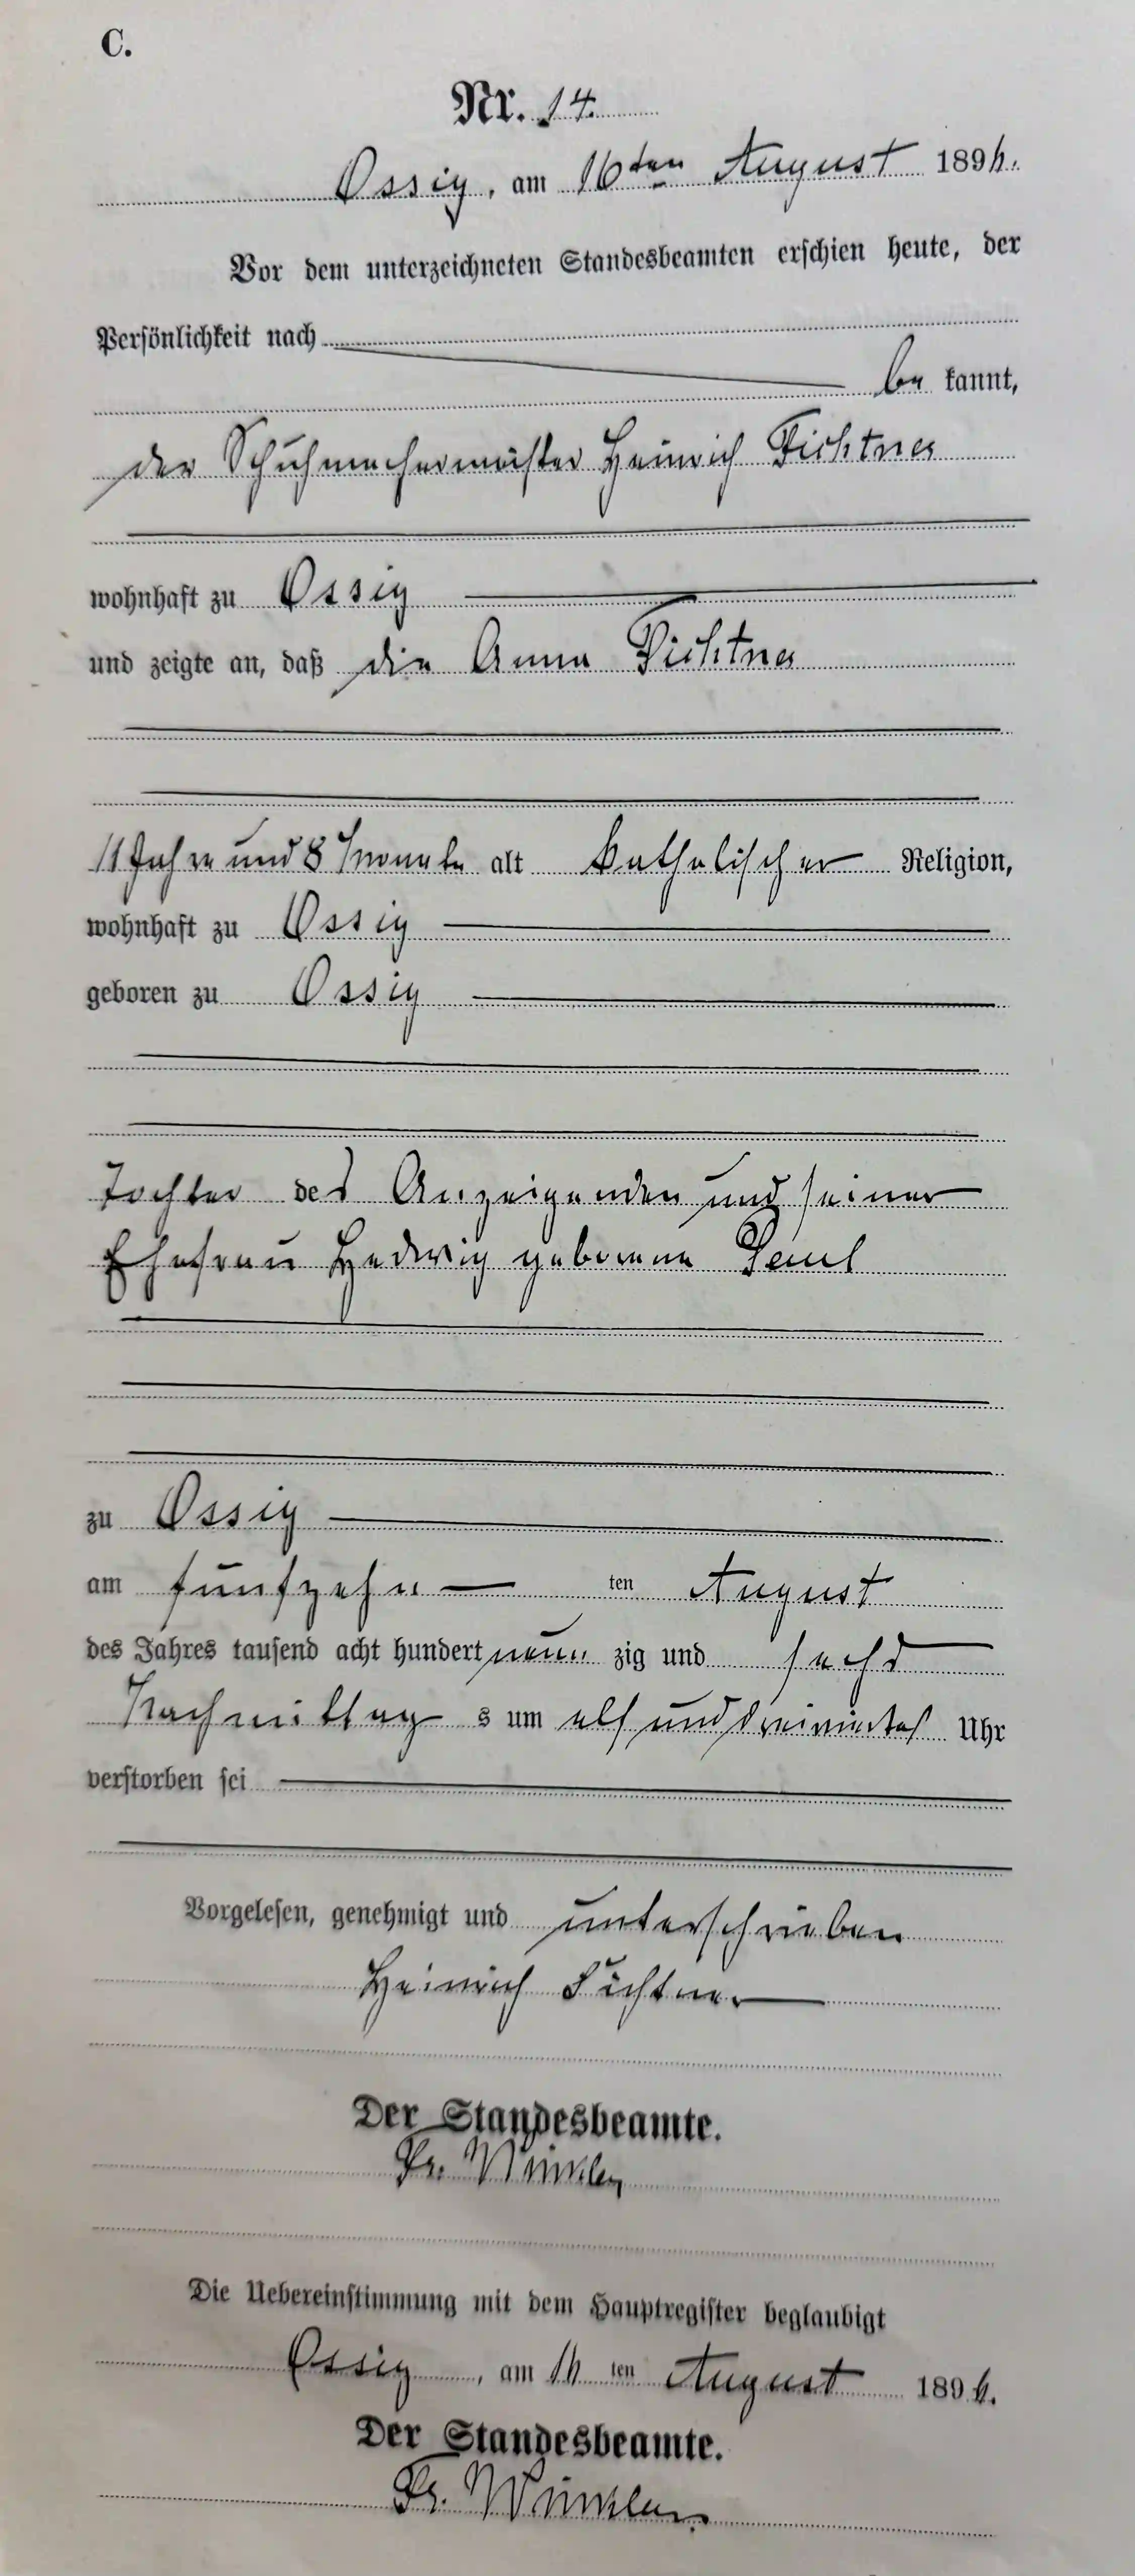 C.
Nr. 14.
Ossig, am 16ten August 1896.
Vor dem unterzeichneten Standesbeamten erschien heute, der
Persönlichkeit nach
be kannt,
der Schuhmachermeister Heinrich Fichtner
wohnhaft zu Ossig
und zeigte an, daß die Anna Fichtner
11 Jahre und 8 Monate alt katholischer Religion,
wohnhaft zu Ossig
geboren zu Ossig
Tochter des Anzeigenden und seiner
Ehefrau Hedwig geborene Paul
zu Ossig
am fünfzehn ten August
des Jahres tausend acht hundert neun zig und sechs
Nachmittag s um elf und dreiviertel Uhr
verstorben sei
Vorgelesen, genehmigt und unterschrieben
Heinrich Fichtner
Der Standesbeamte.
Fr. Winkler
Die Uebereinstimmung mit dem Hauptregister beglaubigt
Ossig, am 16 ten August 1896.
Der Standesbeamte.
Fr. Winkler